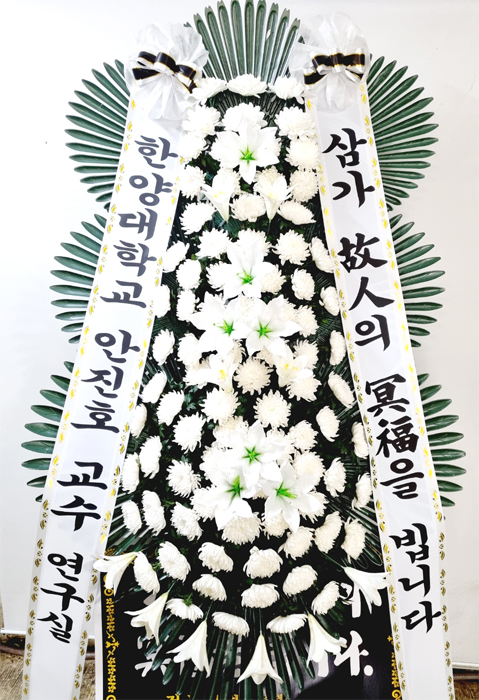 한양대학교 안진호 교수 연구실
삼가 故人의 冥福을 빕니다